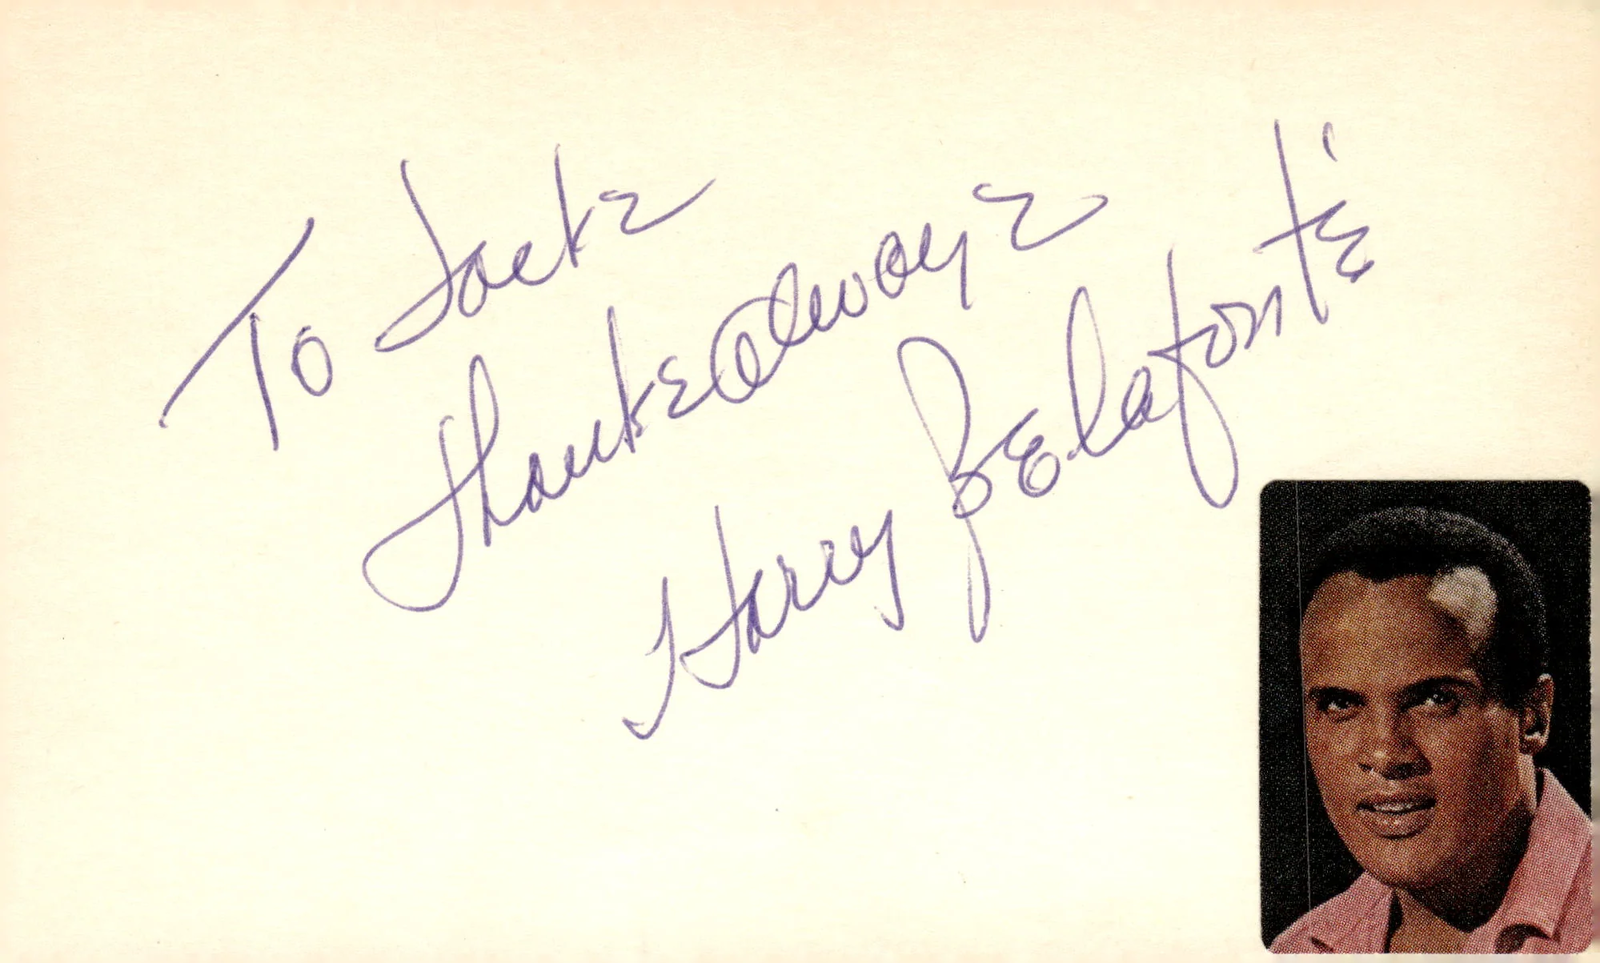 To Jacke
Thanks Always
Harry Belafonté